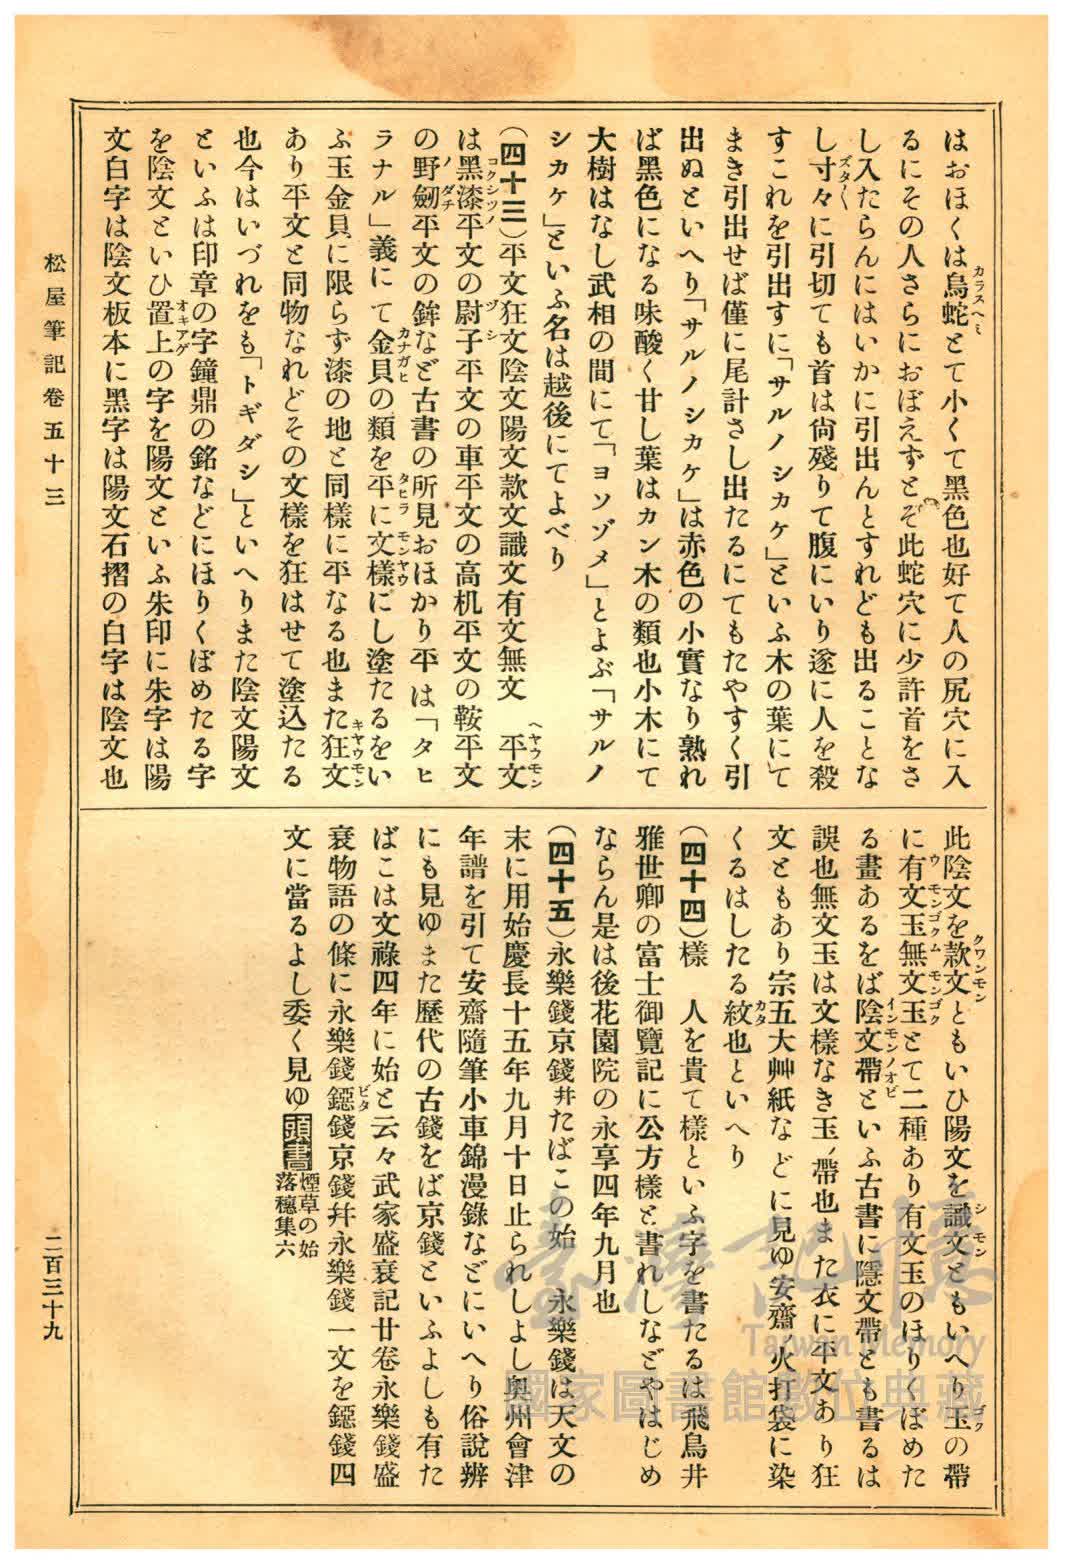 はおほくは烏蛇とて小くて黑色也好て人の尻穴に入
るにその人さらにおぼえずとぞ此蛇穴に少許首をさ
し入たらんにはいかに引出んとすれども出ることな
し寸々に引切ても首は尙殘りて腹にいり遂に人を殺
すこれを引出すに「サルノシカケ」といふ木の葉にて
まき引出せば僅に尾計さし出たるにてもたやすく引
出ぬといへり「サルノシカケ」は赤色の小實なり熟れ
ば黑色になる味酸く甘し葉はカン木の類也小木にて
大樹はなし武相の間にて「ヨソゾメ」とよぶ「サルノ
シカケ」といふ名は越後にてよべり
(四十三)平文狂文陰文陽文款文識文有文無文　平文
は黑漆平文の尉子平文の車平文の高机平文の鞍平文
の野劒平文の鉾など古書の所見おほかり平は「タヒ
ラナル」義にて金貝の類を平に文樣にし塗たるをい
ふ玉金貝に限らず漆の地と同樣に平なる也また狂文
あり平文と同物なれどその文樣を狂はせて塗込たる
也今はいづれをも「トギダシ」といへりまた陰文陽文
といふは印章の字鐘鼎の銘などにほりくぼめたる字
を陰文といひ置上の字を陽文といふ朱印に朱字は陽
文白字は陰文板本に黑字は陽文石摺の白字は陰文也
此陰文を款文ともいひ陽文を識文ともいへり玉の帶
に有文玉無文玉とて二種あり有文玉のほりくぼめた
る畫あるをば陰文帶といふ古書に隱文帶とも書るは
誤也無文玉は文樣なき玉ノ帶也また衣に平文あり狂
文ともあり宗五大艸紙などに見ゆ安齋ノ火打袋に染
くるはしたる紋也といへり
(四十四)樣　人を貴て樣といふ字を書たるは飛鳥井
雅世卿の富士御覽記に公方樣と書れしなどやはじめ
ならん是は後花園院の永享四年九月也
(四十五)永樂錢京錢幷たばこの始　永樂錢は天文の
末に用始慶長十五年九月十日止られしよし奧州會津
年譜を引て安齋隨筆小車錦漫錄などにいへり俗說辨
にも見ゆまた歷代の古錢をば京錢といふよしも有た
ばこは文祿四年に始と云々武家盛衰記廿卷永樂錢盛
衰物語の條に永樂錢鐚錢京錢幷永樂錢一文を鐚錢四
文に當るよし委く見ゆ頭書煙草の始落穗集六
松屋筆記卷五十三
二百三十九
臺灣記憶
Taiwan Memory
國家圖書館數位典藏